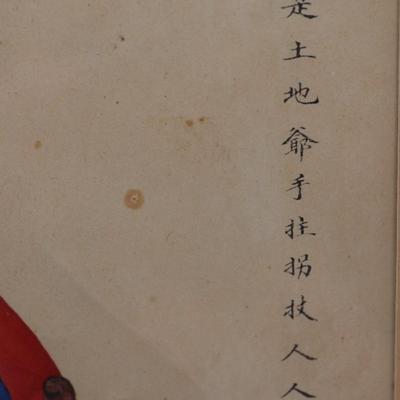 是土地爺手拄拐杖人人